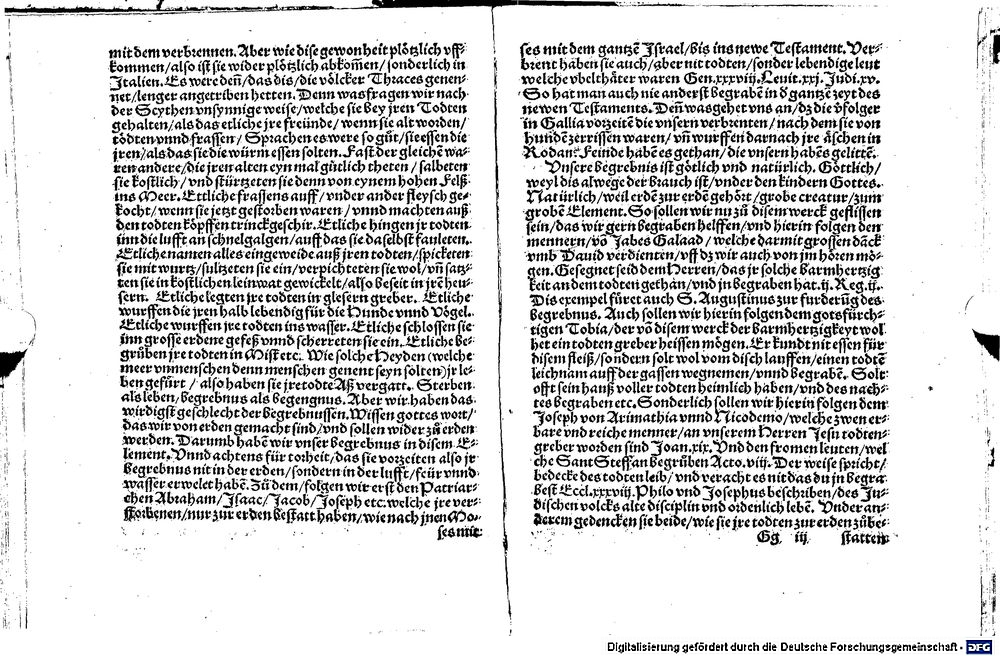 mit dem verbrennen. Aber wie dise gewonheit plötzlich vff-
kommen/also ist sie wider plötzlich abkom̃en/sonderlich in
Italien. Es were deñ/das dis/die völcker Thraces genen-
net/lenger angetriben hetten. Denn was fragen wir nach
der Scythen vnsynnige weise/welche sie bey jren Todten
gehalten/als das etliche jre freünde/wenn sie alt worden/
tödten vnnd frassen/Sprachen es were so gůt/sie essen die
jren/als das sie die würm essen solten. Fast der gleichẽ wa-
ren andere/die jren alten eyn mal gütlich theten/salbeten
sie kostlich/vnd stürtzeten sie denn von eynem hohen Felß
ins Meer. Ettliche frassens auff/vnder ander fleysch ge-
kocht/wenn sie jetzt gestorben waren/vnnd machten auß
den todten köpffen trinckgeschir. Etliche hingen jr todten
inn die lufft an schnelgalgen/auff das sie daselbst fauleten.
Etliche namen alles eingeweide auß jren todten/spicketen
sie mit wurtz/sultzeten sie ein/verpichteten sie wol/vñ satz-
ten sie in köstlichen leinwat gewickelt/also beseit in jrẽ heu-
sern. Etliche legten jre todten in glesern greber. Etliche
wurffen die jren halb lebendig für die Hunde vnnd Vögel.
Etliche wurffen jre todten ins wasser. Etliche schlossen sie
inn grosse erdene gefeß vnnd scherreten sie ein. Etliche be-
grůben jre todten in Mist etc. Wie solche Heyden (welche
meer vnmenschen denn menschen genent seyn solten) jr le-
ben gefürt/also haben sie jre todte Aß vergatt. Sterben
als leben/begrebnus als begengnus. Aber wir haben das
wirdigst geschlecht der begrebnussen. Wissen gottes wort/
das wir von erden gemacht sind/vnd sollen wider zů erden
werden. Darumb habẽ wir vnser begrebnus in disem E-
lement. Vnnd achtens für torheit/das sie vorzeiten also jr
begrebnus nit in der erden/sondern in der lufft/feür vnnd
wasser erwelet habẽ. Zů dem/folgen wir erst den Patriar-
chen Abraham/Isaac/Jacob/Joseph etc. welche jre ver-
storbenen/nur zur erden bestatt haben/wie nach jnen Mo-
ses mit
ses mit dem gantzẽ Israel/bis ins newe Testament. Ver-
brent haben sie auch/aber nit todten/sonder lebendige leut
welche vbelthäter waren Gen.xxxviij. Leuit.xxj. Judi.xv.
So hat man auch nie anderst begrabẽ in ď gantzẽ zeyt des
newen Testaments. Deñ was gehet vns an/dz die ṽfolger
in Gallia vorzeitẽ die vnsern verbrenten/nach dem sie von
hundẽ zerrissen waren/vñ wurffen darnach jre äschen in
Rodan: Feinde habẽ es gethan/die vnsern habẽ gelittẽ.
Vnsere begrebnis ist götlich vnd natürlich. Göttlich/
weyl dis alwege der brauch ist/vnder den kindern Gottes.
Natürlich/weil erdẽ zur erdẽ gehört/grobe creatur/zum
grobẽ Element. So sollen wir nu zů disem werck geflissen
sein/das wir gern begraben helffen/vnd hierin folgen den
mennern/võ Jabes Galaad/welche darmit grossen dãck
vmb Dauid verdienten/vff dz wir auch von jm hören mö-
gen. Gesegnet seid dem Herren/das jr solche barmhertzig
keit an dem todten gethan/vnd jn begraben hat. ij. Reg.ij.
Dis exempel füret auch S. Augustinus zur furderũg des
begrebnus. Auch sollen wir hierin folgen dem gotsfürch-
tigen Tobia/der võ disem werck der barmhertzigkeyt wol
het ein todten greber heissen mögen. Er kundt nit essen für
disem fleiß/sondern solt wol vom disch lauffen/einen todtẽ
leichnam auff der gassen wegnemen/vnnd begrabẽ. Solt
offt sein hauß voller todten heimlich haben/vnd des nach-
tes begraben etc. Sonderlich sollen wir hierin folgen dem
Joseph von Arimathia vnnd Nicodemo/welche zwen er-
bare vnd reiche menner/an vnserem Herren Jesu todten-
greber worden sind Joan.xix. Vnd den fromen leuten/wel
che Sant Steffan begrůben Acto.viij. Der weise spricht/
bedecke des todten leib/vnd veracht es nit das du jn begra
best Eccl.xxxviij. Philo vnd Josephus beschriben/des Ju-
dischen volcks alte disciplin vnd ordenlich lebẽ. Vnder an-
derem gedencken sie beide/wie sie jre todten zur erden zů be-
Gg iij statten
Digitalisierung gefördert durch die Deutsche Forschungsgemeinschaft - DFG